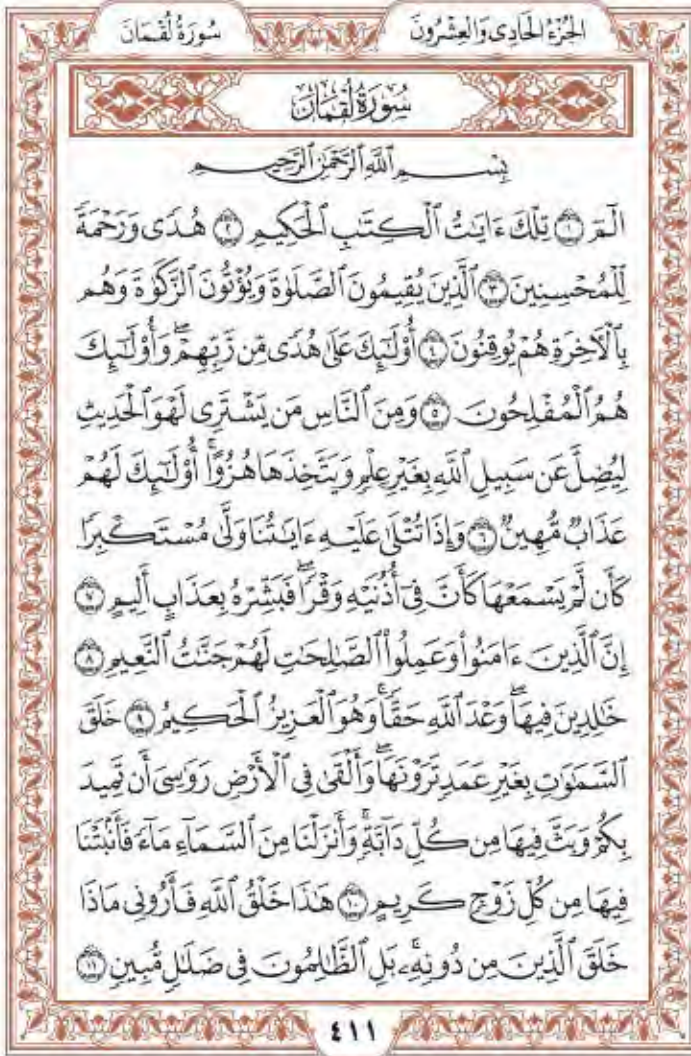 سُورَةُ لُقْمَانَ الجُزْءُ الحَادِى وَالعِشْرُونَ
سُورَةُ لُقْمَانَ
بِسْمِ ٱللَّهِ ٱلرَّحْمَٰنِ ٱلرَّحِيمِ
الٓمٓ ۝١ تِلْكَ ءَايَٰتُ ٱلْكِتَٰبِ ٱلْحَكِيمِ ۝٢ هُدًى وَرَحْمَةً
لِّلْمُحْسِنِينَ ۝٣ ٱلَّذِينَ يُقِيمُونَ ٱلصَّلَوٰةَ وَيُؤْتُونَ ٱلزَّكَوٰةَ وَهُم
بِٱلْءَاخِرَةِ هُمْ يُوقِنُونَ ۝٤ أُو۟لَٰٓئِكَ عَلَىٰ هُدًى مِّن رَّبِّهِمْ ۖ وَأُو۟لَٰٓئِكَ
هُمُ ٱلْمُفْلِحُونَ ۝٥ وَمِنَ ٱلنَّاسِ مَن يَشْتَرِى لَهْوَ ٱلْحَدِيثِ
لِيُضِلَّ عَن سَبِيلِ ٱللَّهِ بِغَيْرِ عِلْمٍ وَيَتَّخِذَهَا هُزُوًا ۚ أُو۟لَٰٓئِكَ لَهُمْ
عَذَابٌ مُّهِينٌ ۝٦ وَإِذَا تُتْلَىٰ عَلَيْهِ ءَايَٰتُنَا وَلَّىٰ مُسْتَكْبِرًا
كَأَن لَّمْ يَسْمَعْهَا كَأَنَّ فِىٓ أُذُنَيْهِ وَقْرًا ۖ فَبَشِّرْهُ بِعَذَابٍ أَلِيمٍ ۝٧
إِنَّ ٱلَّذِينَ ءَامَنُوا۟ وَعَمِلُوا۟ ٱلصَّٰلِحَٰتِ لَهُمْ جَنَّٰتُ ٱلنَّعِيمِ ۝٨
خَٰلِدِينَ فِيهَا ۖ وَعْدَ ٱللَّهِ حَقًّا ۚ وَهُوَ ٱلْعَزِيزُ ٱلْحَكِيمُ ۝٩ خَلَقَ
ٱلسَّمَٰوَٰتِ بِغَيْرِ عَمَدٍ تَرَوْنَهَا ۖ وَأَلْقَىٰ فِى ٱلْأَرْضِ رَوَٰسِىَ أَن تَمِيدَ
بِكُمْ وَبَثَّ فِيهَا مِن كُلِّ دَآبَّةٍ ۚ وَأَنزَلْنَا مِنَ ٱلسَّمَآءِ مَآءً فَأَنۢبَتْنَا
فِيهَا مِن كُلِّ زَوْجٍ كَرِيمٍ ۝١٠ هَٰذَا خَلْقُ ٱللَّهِ فَأَرُونِى مَاذَا
خَلَقَ ٱلَّذِينَ مِن دُونِهِۦ ۚ بَلِ ٱلظَّٰلِمُونَ فِى ضَلَٰلٍ مُّبِينٍ ۝١١
٤١١